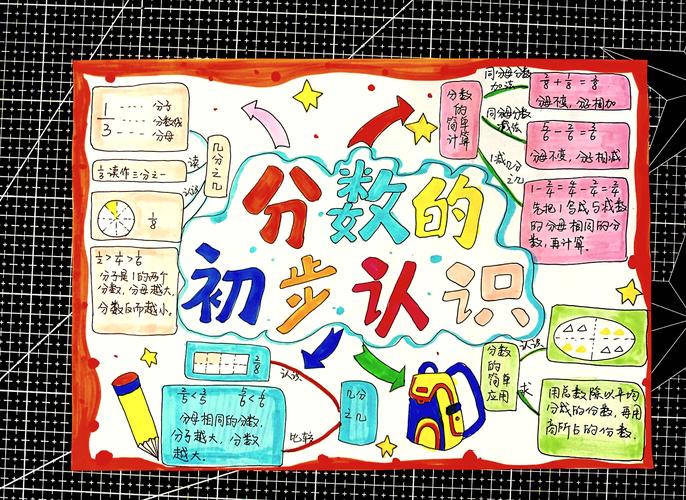 分数的
初步认识
几分之几
读
认识
1 ···· 分子
—— ··· 分数线
3 ···· 分母
1/3读作三分之一
1/8
分子是1的两个
分数,分母越大,
分数反而越小。
分数的简单计算
同分母分数
加法
分母不变,分子相加
同分母分数
减法
5/6-2/6=3/6
分母不变,分子相减
1减几分之几
1-1/4=4/4-1/4=3/4
先把1写成与减数
的分母相同的分
数,再计算.
几分之几
认识
比较
2/5<3/5 5/6<6/6
分母相同的分数.
分子越大,分数
越大.
分数的简单应用
认识
求
用总数除以平均
分成的份数,再用
商所占的份数.